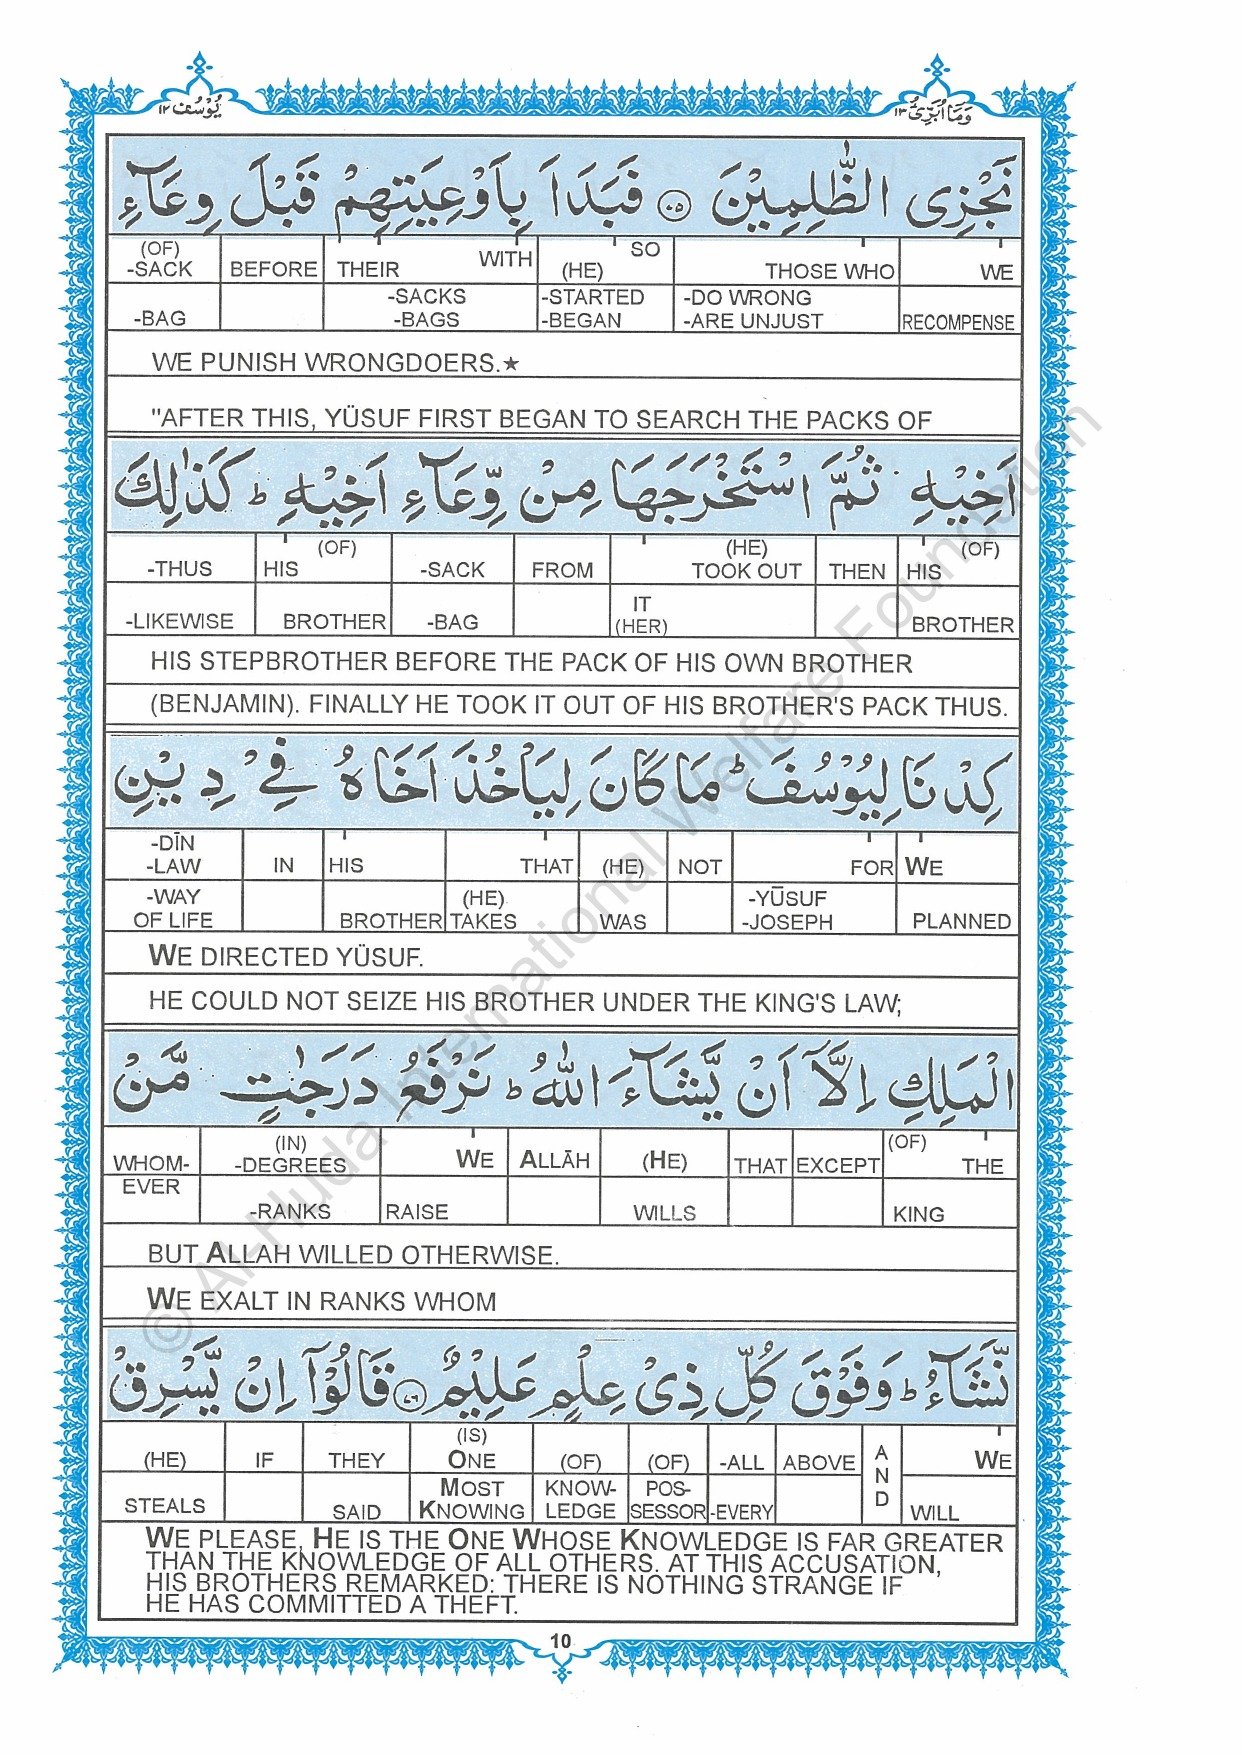 وَمَا اُبَرِّئُ ١٣
يُوْسُف ١٢
نَجْزِى الظّٰلِمِيْنَ ٧٥ فَبَدَاَ بِاَوْعِيَتِهِمْ قَبْلَ وِعَآءِ
(OF) -SACK BEFORE THEIR WITH (HE) SO THOSE WHO WE
-BAG -SACKS -BAGS -STARTED -BEGAN -DO WRONG -ARE UNJUST RECOMPENSE
WE PUNISH WRONGDOERS.★
"AFTER THIS, YÜSUF FIRST BEGAN TO SEARCH THE PACKS OF
اَخِيْهِ ثُمَّ اسْتَخْرَجَهَا مِنْ وِّعَآءِ اَخِيْهِ ؕ كَذٰلِكَ
-THUS HIS (OF) -SACK FROM (HE) TOOK OUT THEN HIS (OF)
-LIKEWISE BROTHER -BAG IT (HER) BROTHER
HIS STEPBROTHER BEFORE THE PACK OF HIS OWN BROTHER
(BENJAMIN). FINALLY HE TOOK IT OUT OF HIS BROTHER'S PACK THUS.
كِدْنَا لِيُوْسُفَ ؕ مَا كَانَ لِيَاْخُذَ اَخَاهُ فِيْ دِيْنِ
-DĪN -LAW IN HIS THAT (HE) NOT FOR WE
-WAY OF LIFE BROTHER (HE) TAKES WAS -YŪSUF -JOSEPH PLANNED
WE DIRECTED YÜSUF.
HE COULD NOT SEIZE HIS BROTHER UNDER THE KING'S LAW;
الْمَلِكِ اِلَّاۤ اَنْ يَّشَآءَ اللّٰهُ ؕ نَرْفَعُ دَرَجٰتٍ مَّنْ
WHOM- (IN) -DEGREES WE ALLĀH (HE) THAT EXCEPT (OF) THE
EVER -RANKS RAISE WILLS KING
BUT ALLAH WILLED OTHERWISE.
WE EXALT IN RANKS WHOM
نَّشَآءُ ؕ وَفَوْقَ كُلِّ ذِىْ عِلْمٍ عَلِيْمٌ ٧٦ قَالُوْۤا اِنْ يَّسْرِقْ
(HE) IF THEY (IS) ONE (OF) (OF) -ALL ABOVE AND WE
STEALS SAID MOST KNOWING KNOW-LEDGE POS-SESSOR -EVERY WILL
WE PLEASE, HE IS THE ONE WHOSE KNOWLEDGE IS FAR GREATER
THAN THE KNOWLEDGE OF ALL OTHERS. AT THIS ACCUSATION,
HIS BROTHERS REMARKED: THERE IS NOTHING STRANGE IF
HE HAS COMMITTED A THEFT.
10
© Al-Huda International Welfare Foundation